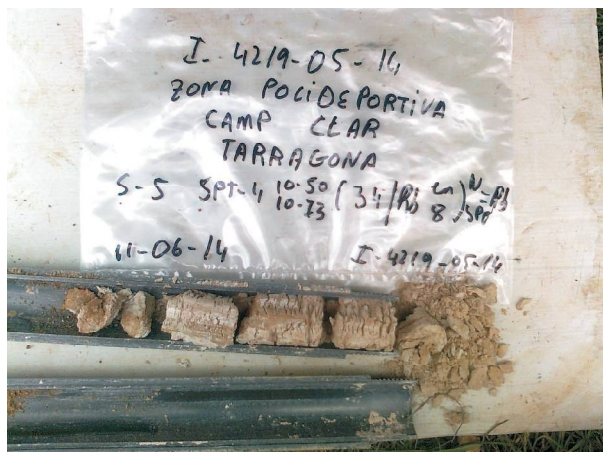 I-4219-05-14
ZONA POLIDEPORTIVA
CAMP CLAR
TARRAGONA
S-5 SPT-4 10-50 (34/Rb en
10-73 8
11-06-14 I-4219-05-14